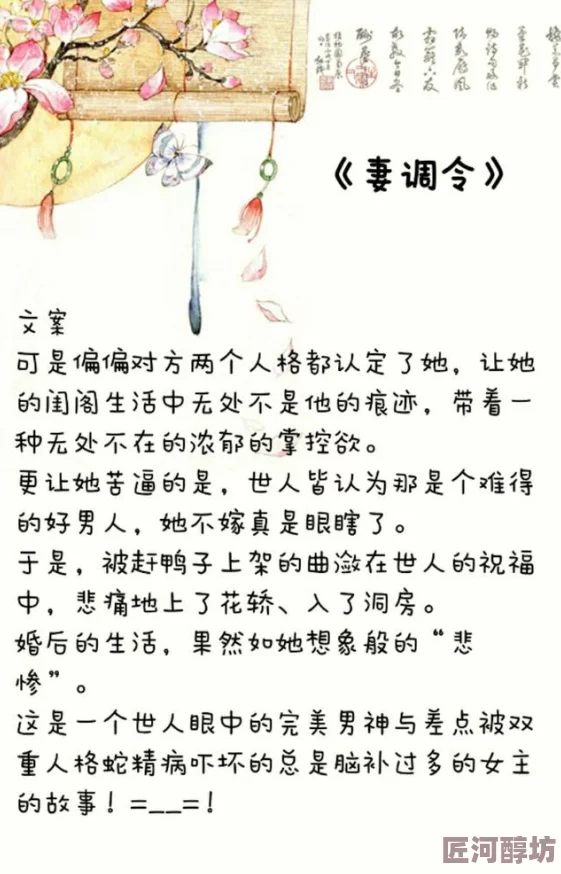 《妻调令》
文案
可是偏偏对方两个人格都认定了她，让她
的闺阁生活中无处不是他的痕迹，带着一
种无处不在的浓郁的掌控欲。
更让她苦逼的是，世人皆认为那是个难得
的好男人，她不嫁真是眼瞎了。
于是，被赶鸭子上架的曲潋在世人的祝福
中，悲痛地上了花轿、入了洞房。
婚后的生活，果然如她想象般的“悲
惨”。
这是一个世人眼中的完美男神与差点被双
重人格蛇精病吓坏的总是脑补过多的女主
的故事！=__=！
匠河醇坊